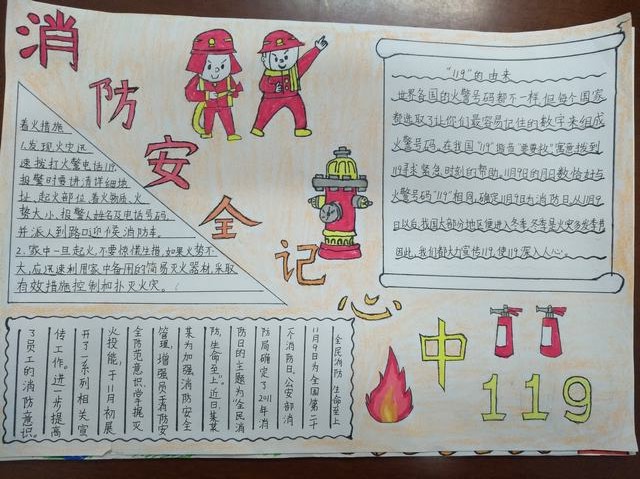 消防安全记心中
着火措施
1.发现火灾迅
速拨打火警电话119,
报警时要讲清详细地
址、起火部位、着火物质、火
势大小、报警人姓名及电话号码,
并派人到路口迎候消防车。
2.家中一旦起火,不要惊慌失措,如果火势不
大,应迅速利用家中备用的简易灭火器材,采取
有效措施控制和扑灭火灾。
“119”的由来
世界各国的火警号码都不一样,但每个国家
都选取了让你们最容易记住的数字来组成
火警号码,在我国“119”暗音“要要救”寓意拨到
119寻求紧急时刻的帮助,11月9日的月日数恰好与
火警号码“119”相同,确定11月9日为消防日,从11月9
日以后,我国大部分地区便进入冬季,冬季是火灾多发季节
因此,我们都大力宣传119,使119深入人心。
全民消防 生命至上
11月9日为全国第二十
个消防日,公安部消
防局确定了2011年消
防日的主题为“全民消
防,生命至上”。近日,某某
某为加强消防安全
管理,增强员工消防安
全防范意识,掌握灭
火技能,于11月初展
开了一系列相关宣
传工作。进一步提高
了员工的消防意识。
119